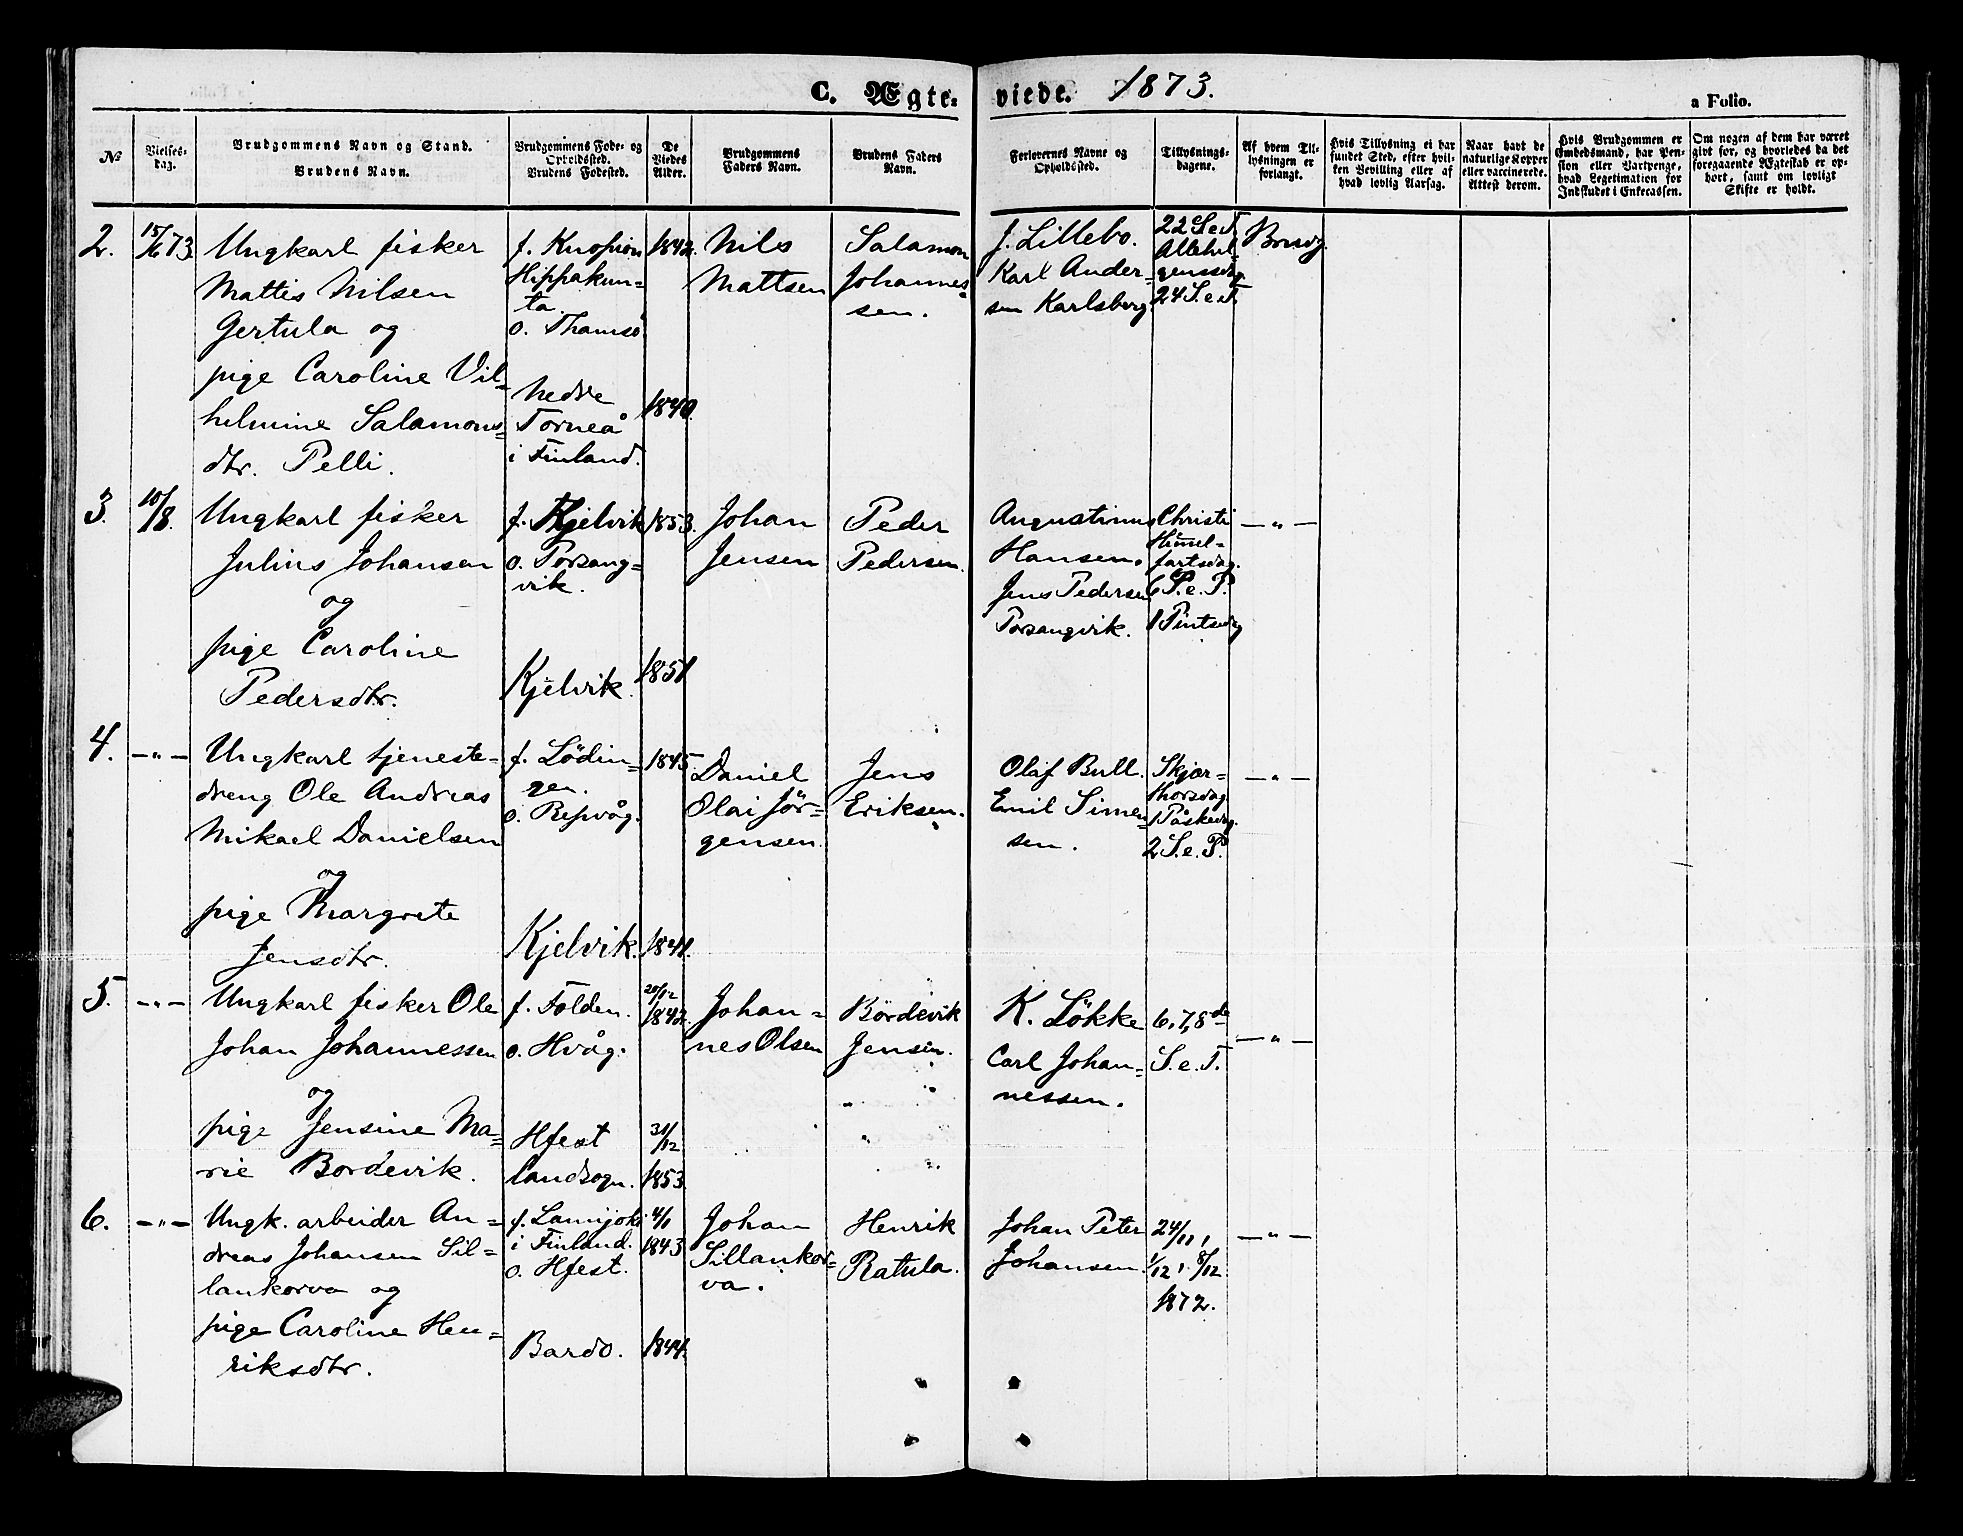 C. Ægteviede. 1873.
a Folio.
№
Vielsesdag.
Brudgommens Navn og Stand.
Brudens Navn.
Brudgommens Føde- og
Opholdssted.
Brudens Fødested.
De
Viedes
Alder.
Brudgommens
Faders Navn.
Brudens Faders
Navn.
Forlovernes Navne og
Opholdssted.
Tillysnings-
dagene.
Af hvem Til-
lysningen er
forlangt.
Hvis Tillysning ei har
fundet Sted, efter hvil-
ken Bevilling eller af
hvad lovlig Aarsag.
Naar havt de
naturlige Kopper
eller vaccinerede.
Attest derom.
Hvis Brudgommen er
Embedsmand, har Pen-
sion eller Vartpenge,
hvad Legitimation for
Indskudet i Enkecassen.
Om nogen af dem har været
gift før, og hvorledes da det
foregaaende Ægteskab er op-
hørt, samt om lovligt
Skifte er holdt.
2.
15/6 73
Ungkarl fisker
Mattis Nilsen
Gertula og
pige Caroline Vil-
helmine Salamons-
dtr. Pelli.
f. Knopion
Hippakun-
ta.
o. Thamsø
Nedre
Torneå
i Finland.
1842.
1840.
Nils
Mattsen
Salamon
Johannes-
sen.
J. Lillebo.
Karl Ander-
sen Karlsberg.
22 S.e.T.
Allehel-
gensdg.
24 S.e.T.
Brudg.
3.
10/8.
Ungkarl fisker
Julius Johansen
og
pige Caroline
Pedersdtr.
f. Kjelvik
o. Porsang-
vik.
Kjelvik.
1853.
1851
Johan
Jensen
Peder
Pedersen.
Augustinus
Hansen.
Jens Pedersen
Porsangvik.
Christi
Himmel-
fartsdag.
6 S.e.P.
1 Pintsedg
—„—
4.
—„—
Ungkarl tjeneste-
dreng Ole Andreas
Mikael Danielsen
og
pige Margrete
Jensdtr.
f. Lödin-
gen.
o. Repvåg.
Kjelvik.
1845
1841.
Daniel
Olai Jör-
gensen.
Jens
Eriksen.
Olaf Bull.
Emil Simen-
sen.
Skjær-
thorsdag
1 Påskedg.
2 S.e.P.
—„—
5.
—„—
Ungkarl fisker Ole
Johan Johannessen
og
pige Jensine Ma-
rie Bordevik.
f. Folden.
o. Hvåg.
Hfest
landsogn.
20/12
1842.
31/12
1853.
Johan-
nes Olsen
Bördevik
Jensen.
K. Lökke
Carl Johan-
nessen.
6, 7, 8de
S.e.T.
—„—
6.
—„—
Ungk. arbeider An-
dreas Johansen Sil-
lankorva og
pige Caroline Hen-
riksdtr.
f. Lamijoki
i Finland.
o. Hfest.
Bardo.
4/1
1843
1844.
Johan
Sillankor-
va.
Henrik
Ratula.
Johan Peter
Johansen.
24/11,
1/12, 8/12
1872.
—„—